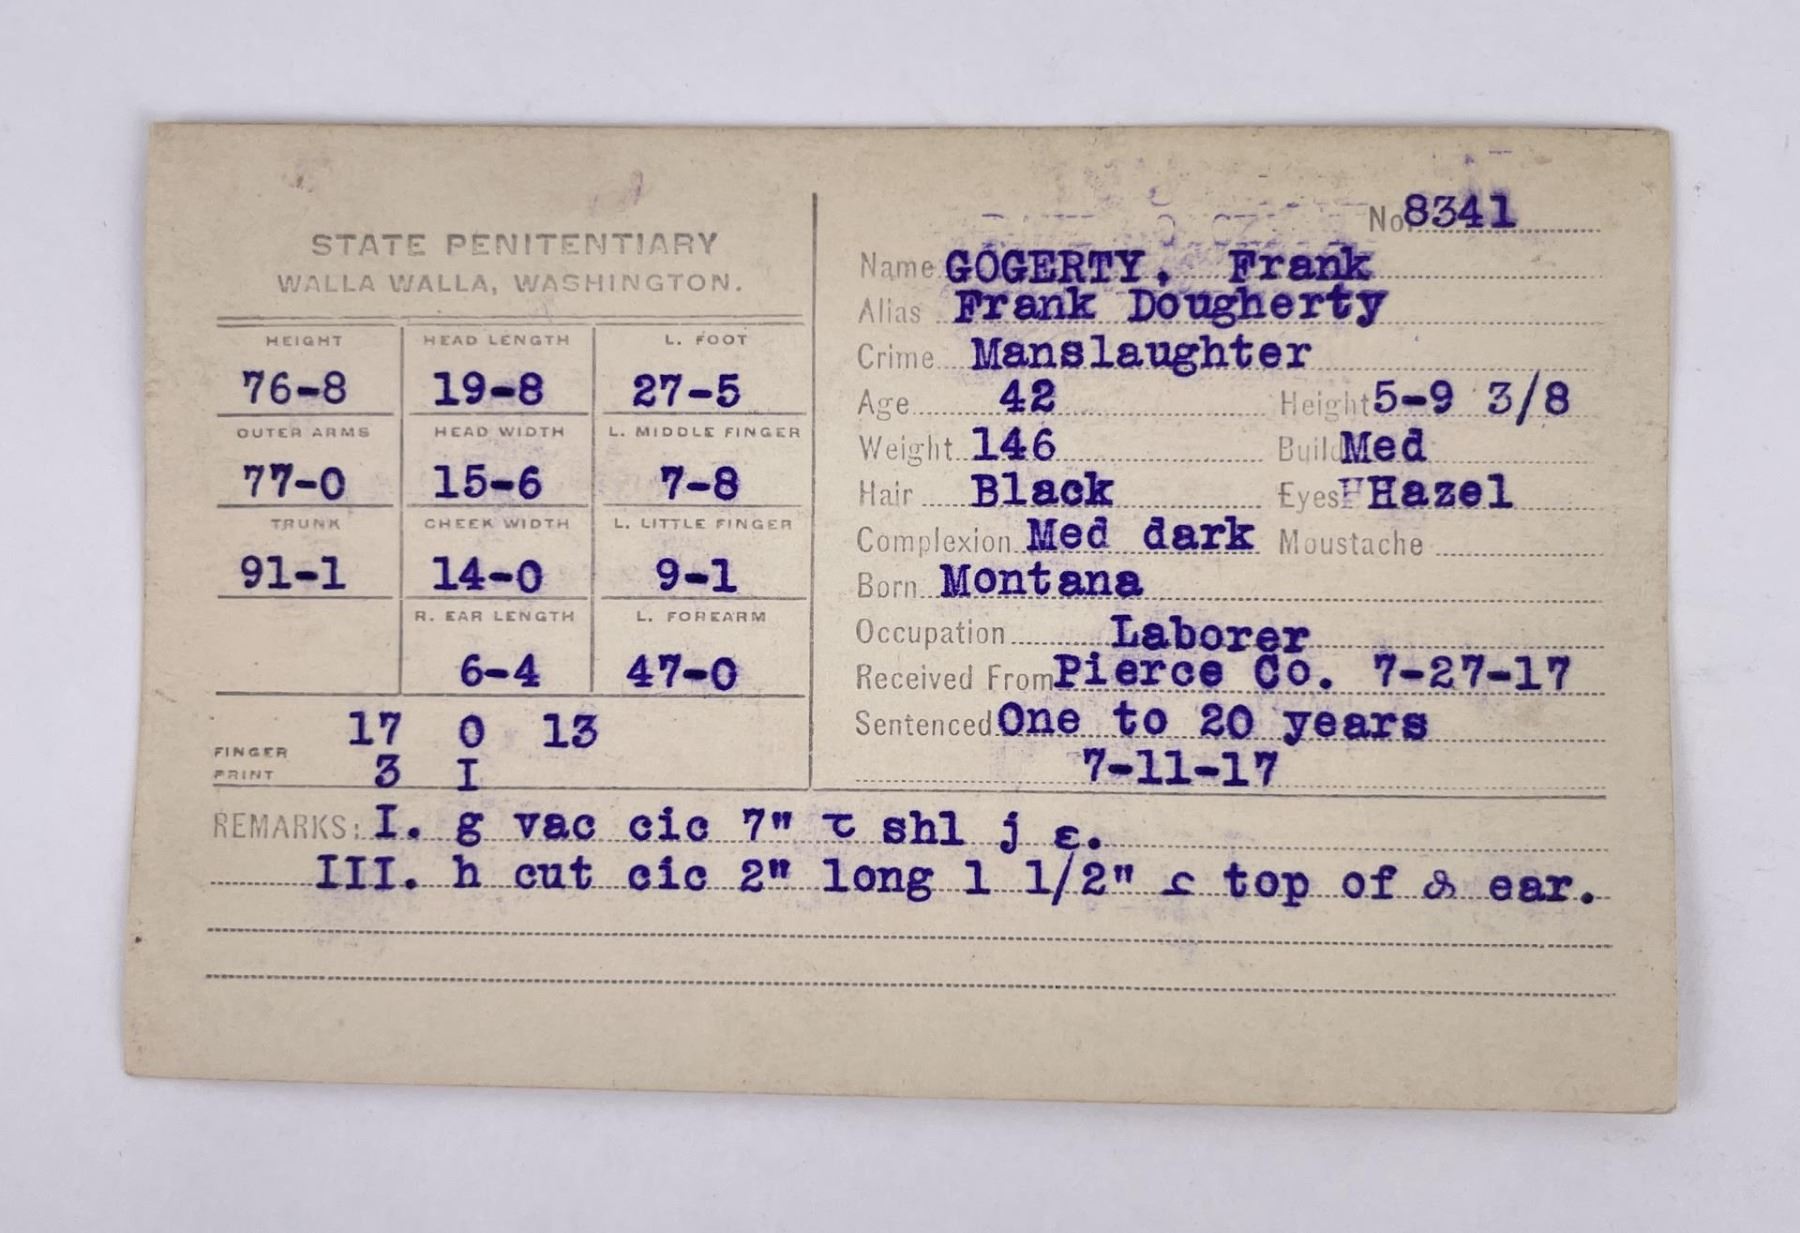 STATE PENITENTIARY
WALLA WALLA, WASHINGTON.
HEIGHT HEAD LENGTH L. FOOT
76-8 19-8 27-5
OUTER ARMS HEAD WIDTH L. MIDDLE FINGER
77-0 15-6 7-8
TRUNK CHEEK WIDTH L. LITTLE FINGER
91-1 14-0 9-1
R. EAR LENGTH L. FOREARM
6-4 47-0
17 O 13
FINGER
PRINT 3 I
No. 8341
Name GOGERTY, Frank
Alias Frank Dougherty
Crime Manslaughter
Age 42 Height 5-9 3/8
Weight 146 Build Med
Hair Black Eyes Hazel
Complexion Med dark Moustache
Born Montana
Occupation Laborer
Received From Pierce Co. 7-27-17
Sentenced One to 20 years
7-11-17
REMARKS: I. g vac cic 7" shl j ε.
III. h cut cic 2" long 1 1/2" top of ear.